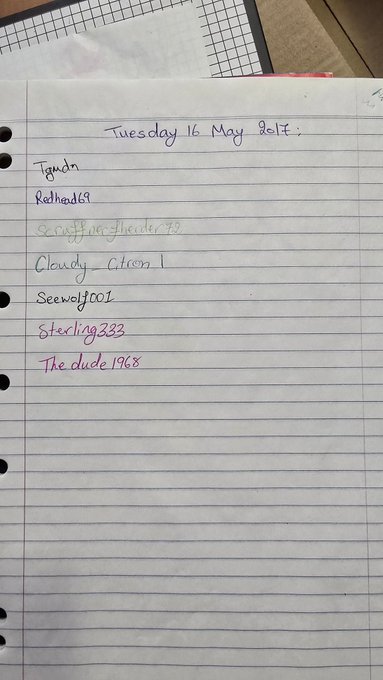 Tuesday 16 May 2017:
Tgmdn
Redhead69
Cloudy_Citron 1
Seewolf001
Sterling333
The dude 1968